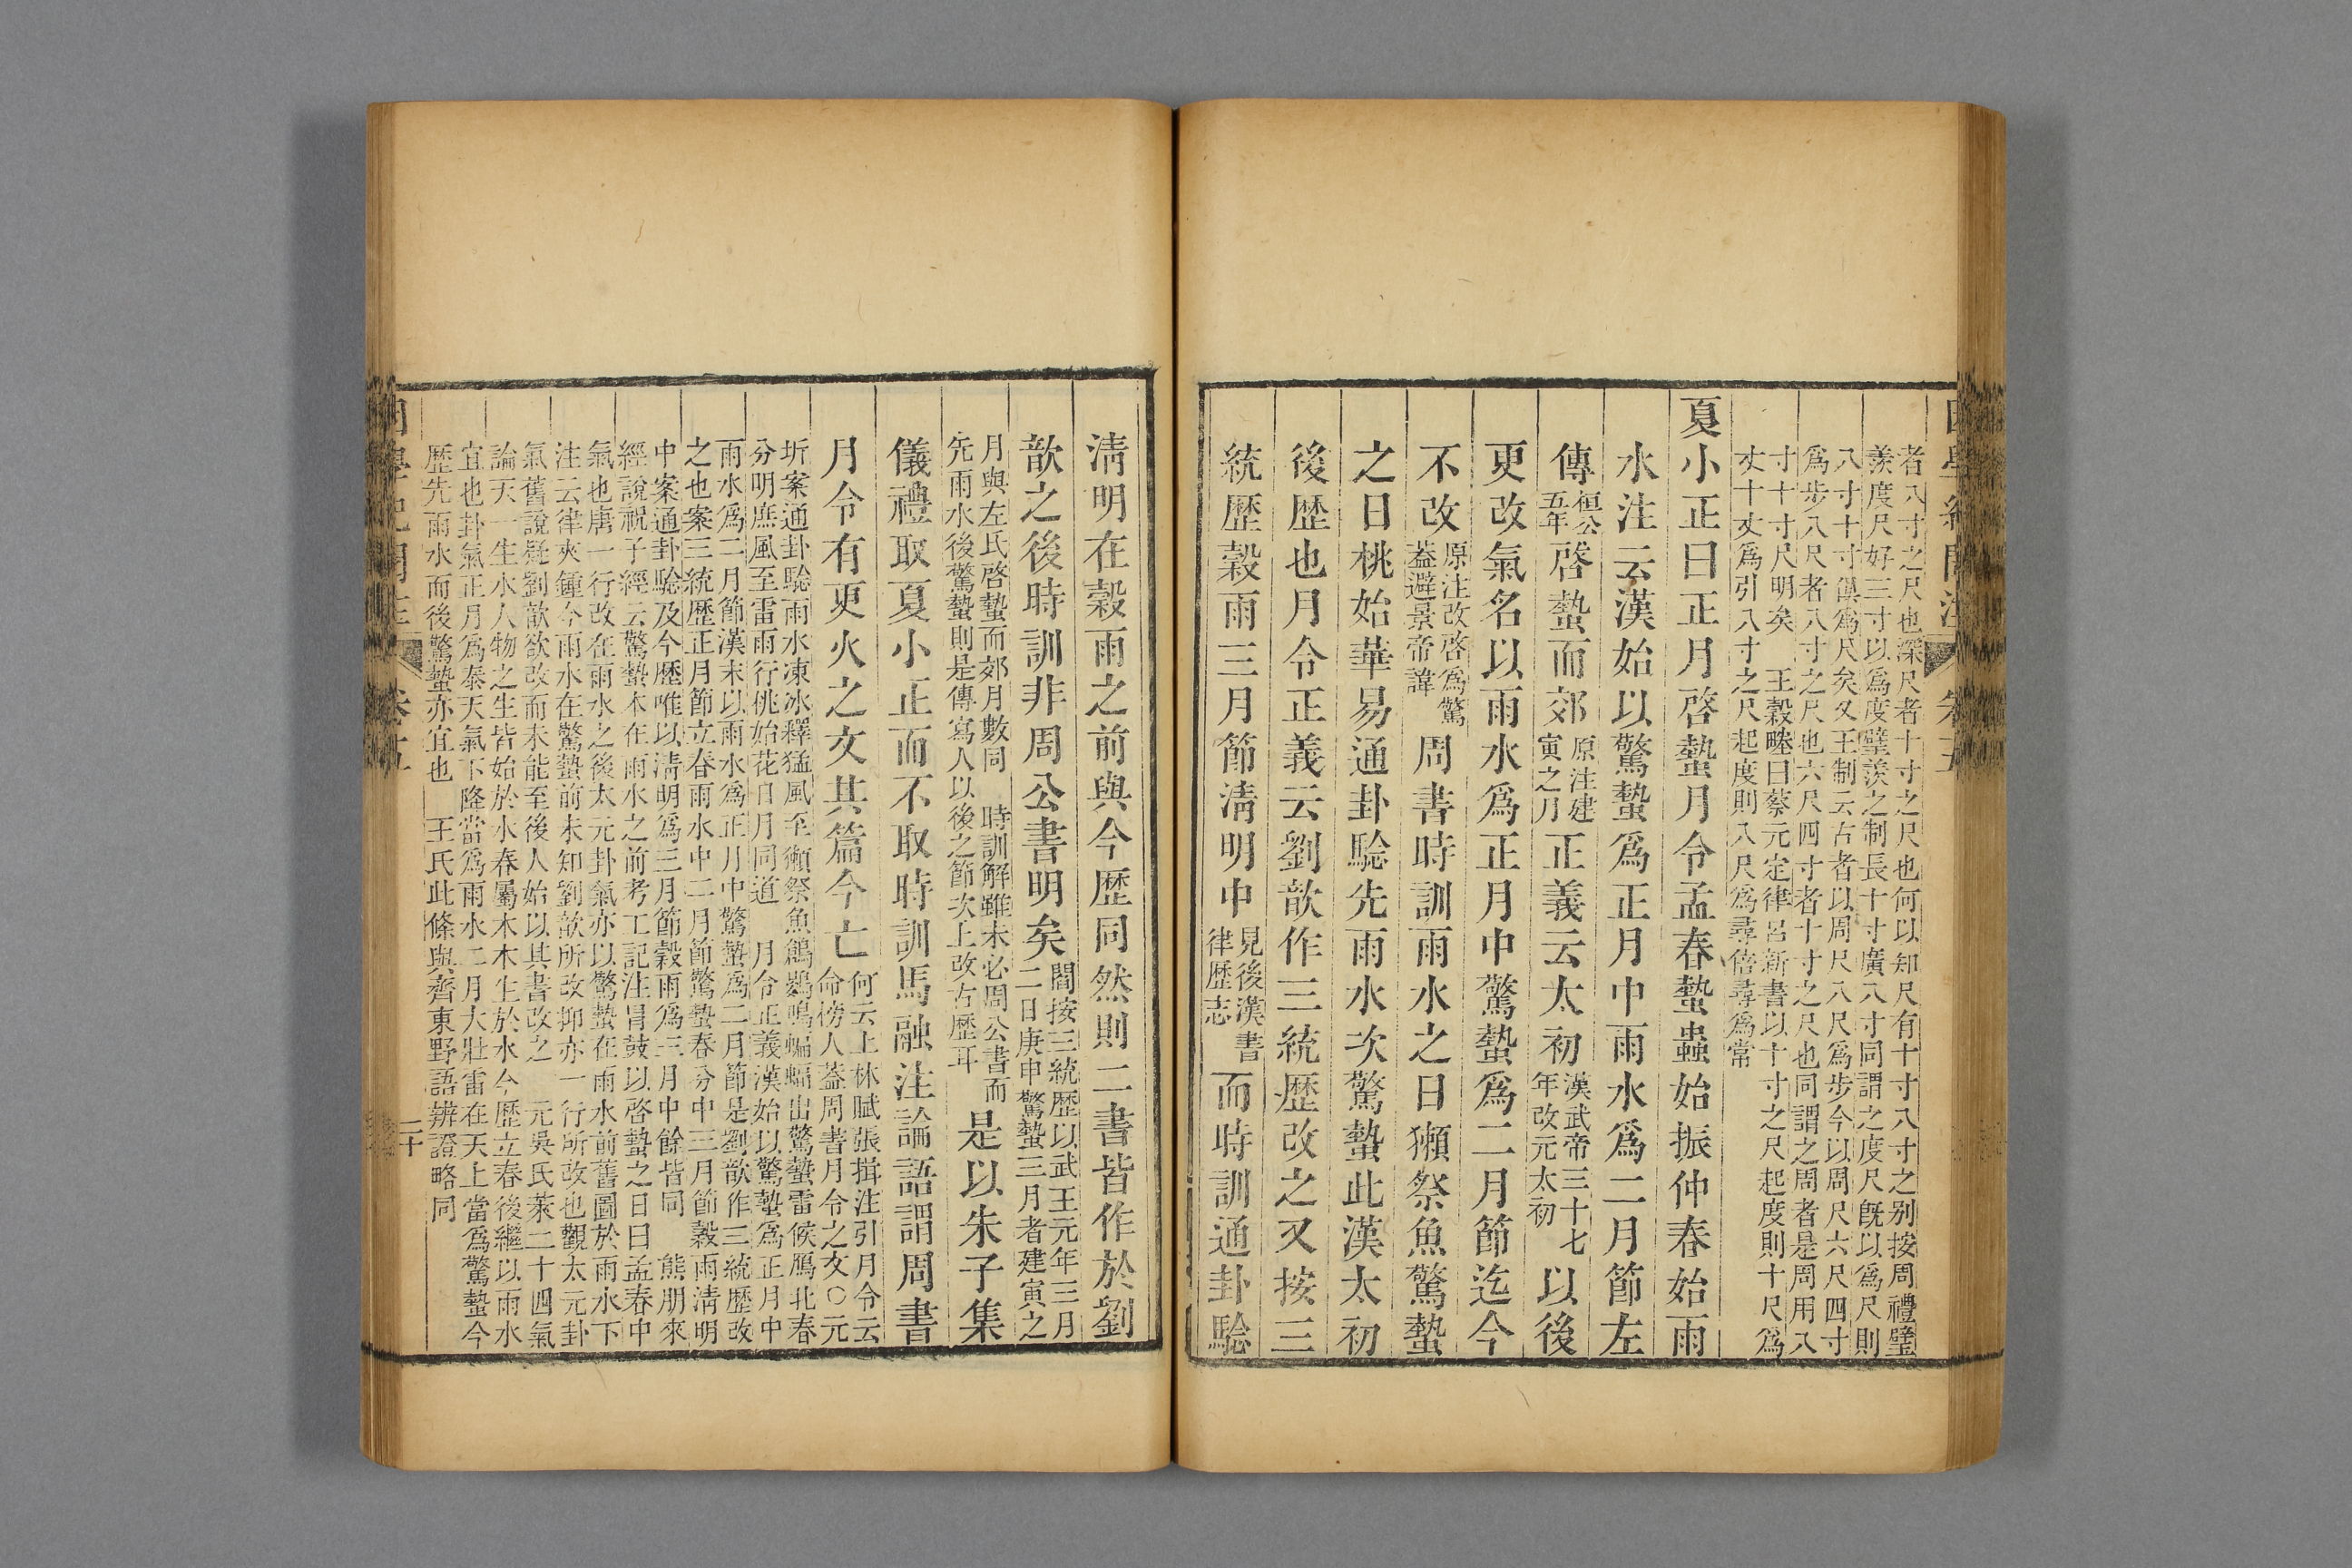 者八寸之尺也深尺者十寸之尺也何以知尺有十寸八寸之别按周禮璧
羨度尺好三寸以爲度璧羨之制長十寸廣八寸同謂之度尺旣以爲尺則
八寸十寸俱爲尺矣又王制云古者以周尺八尺爲步今以周尺六尺四寸
爲步八尺者八寸之尺也六尺四寸者十寸之尺也同謂之周者是周用八
寸十寸尺明矣 王穀塍曰蔡元定律呂新書以十寸之尺起度則十尺爲
丈十丈爲引八寸之尺起度則八尺爲尋倍尋爲常
夏小正曰正月啓蟄月令孟春蟄蟲始振仲春始雨
水注云漢始以驚蟄爲正月中雨水爲二月節左
傳桓公五年啓蟄而郊原注建寅之月正義云太初漢武帝三十七年改元太初以後
更改氣名以雨水爲正月中驚蟄爲二月節迄今
不改原注改啓爲驚蓋避景帝諱周書時訓雨水之日獺祭魚驚蟄
之日桃始華易通卦騐先雨水次驚蟄此漢太初
後歴也月令正義云劉歆作三統歴改之又按三
統歴穀雨三月節淸明中見後漢書律歴志而時訓通卦騐
淸明在穀雨之前與今歴同然則二書皆作於劉
歆之後時訓非周公書明矣閻按三統歴以武王元年三月二日庚申驚蟄三月者建寅之
月與左氏啓蟄而郊月數同 時訓解雖未必周公書而先雨水後驚蟄則是傳寫人以後之節次上改古歴耳是以朱子集
儀禮取夏小正而不取時訓馬融注論語謂周書
月令有更火之文其篇今亡何云上林賦張揖注引月令云命榜人蓋周書月令之文○元
圻案通卦騐雨水凍冰釋猛風至獺祭魚鶬鷃鳴蝙蝠出驚蟄雷候鴈北春
分明庶風至雷雨行桃始花日月同道 月令正義漢始以驚蟄爲正月中
雨水爲二月節漢末以雨水爲正月中驚蟄爲二月節是劉歆作三統歴改
之也案三統歴正月節立春雨水中二月節驚蟄春分中三月節穀雨淸明
中案通卦騐及今歴唯以淸明爲三月節穀雨爲三月中餘皆同 熊朋來
經說祝子經云驚蟄本在雨水之前考工記注冒鼓以啓蟄之日曰孟春中
氣也唐一行改在雨水之後太元卦氣亦以驚蟄在雨水前舊圖於雨水下
注云律夾鍾今雨水在驚蟄前未知劉歆所改抑亦一行所改也觀太元卦
氣舊說疑劉歆欲改而未能至後人始以其書改之 元吳氏萊二十四氣
論天一生水人物之生皆始於水春屬木木生於水今歴立春後繼以雨水
宜也卦氣正月爲泰天氣下降當爲雨水二月大壯雷在天上當爲驚蟄今
歴先雨水而後驚蟄亦宜也 王氏此條與齊東野語辨證略同
卷五
二十